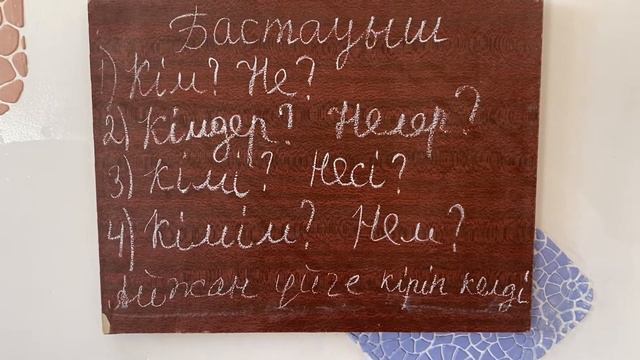 Бастауыш
1) Кім? Не?
2) Кімдер? Нелер?
3) Кімі? Несі?
4) Кімім? Нем?
Айжан үйге кіріп келді